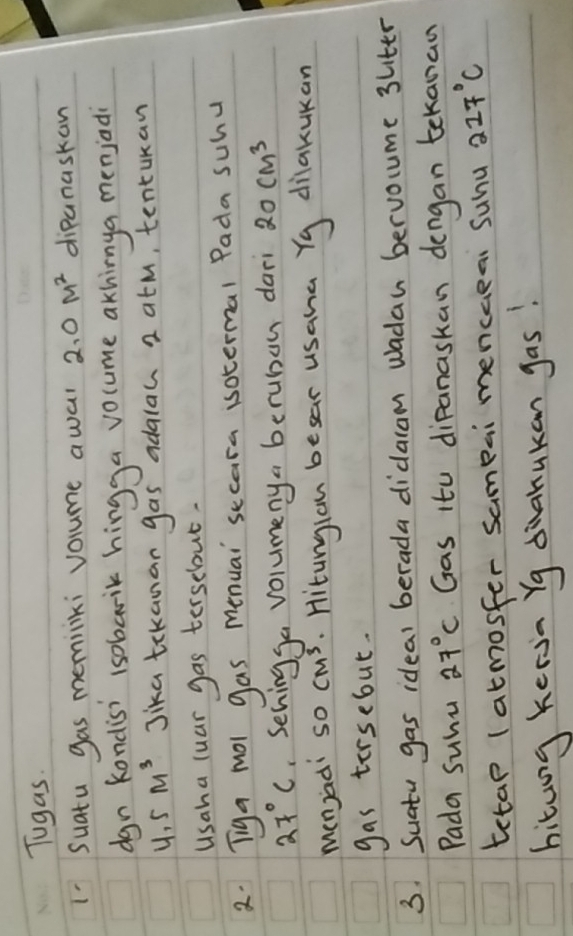 Tugas.
1. Suatu gas memiliki volume awal 2,0 M² dipanaskan
dgn kondisi isobarik hingga volume akhirnya menjadi
4,5 M³ Jika tekanan gas adalah 2 atm, tentukan
usaha luar gas tersebut.
2. Tiga mol gas memuai secara isotermal Pada suhu
27°C, sehingga volumenya berubah dari 20 CM³
menjadi 50 CM³. Hitunglah besar usaha Yg dilakukan
gas tersebut.
3. Suatu gas ideal berada didalam wadah bervolume 3liter
Pada suhu 27°C. Gas itu dipanaskan dengan tekanan
tetap 1 atmosfer sampai mencapai suhu 227°C
hitung kerja Yg dilakukan gas!